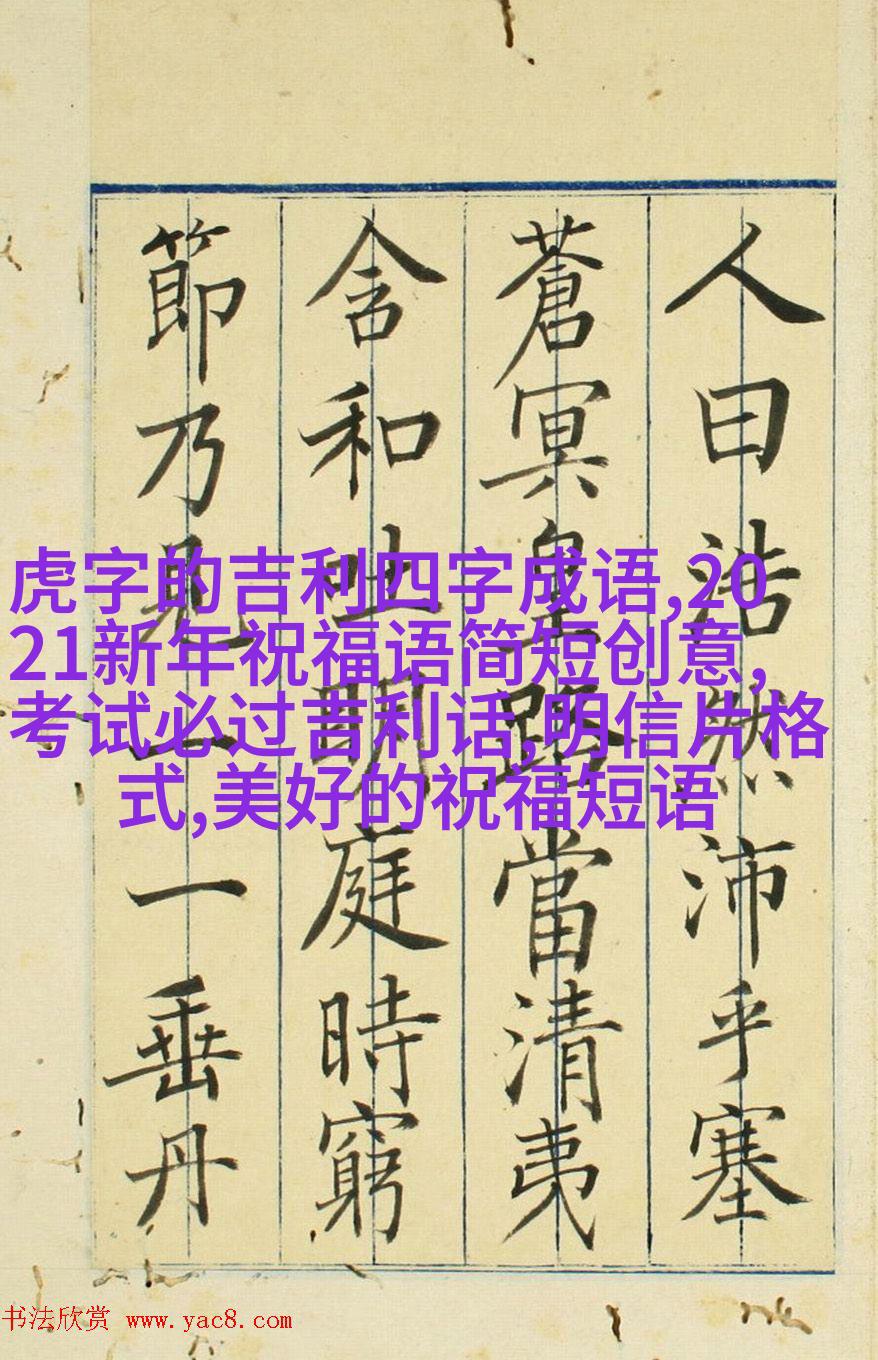 人曰浩然沛乎塞
蒼冥皇路當清夷
含和吐明庭時窮
節乃見一一垂丹
虎字的吉利四字成语,20
21新年祝福语简短创意,
考试必过吉利话,明信片格
式,美好的祝福短语
书法欣赏 www.yac8.com